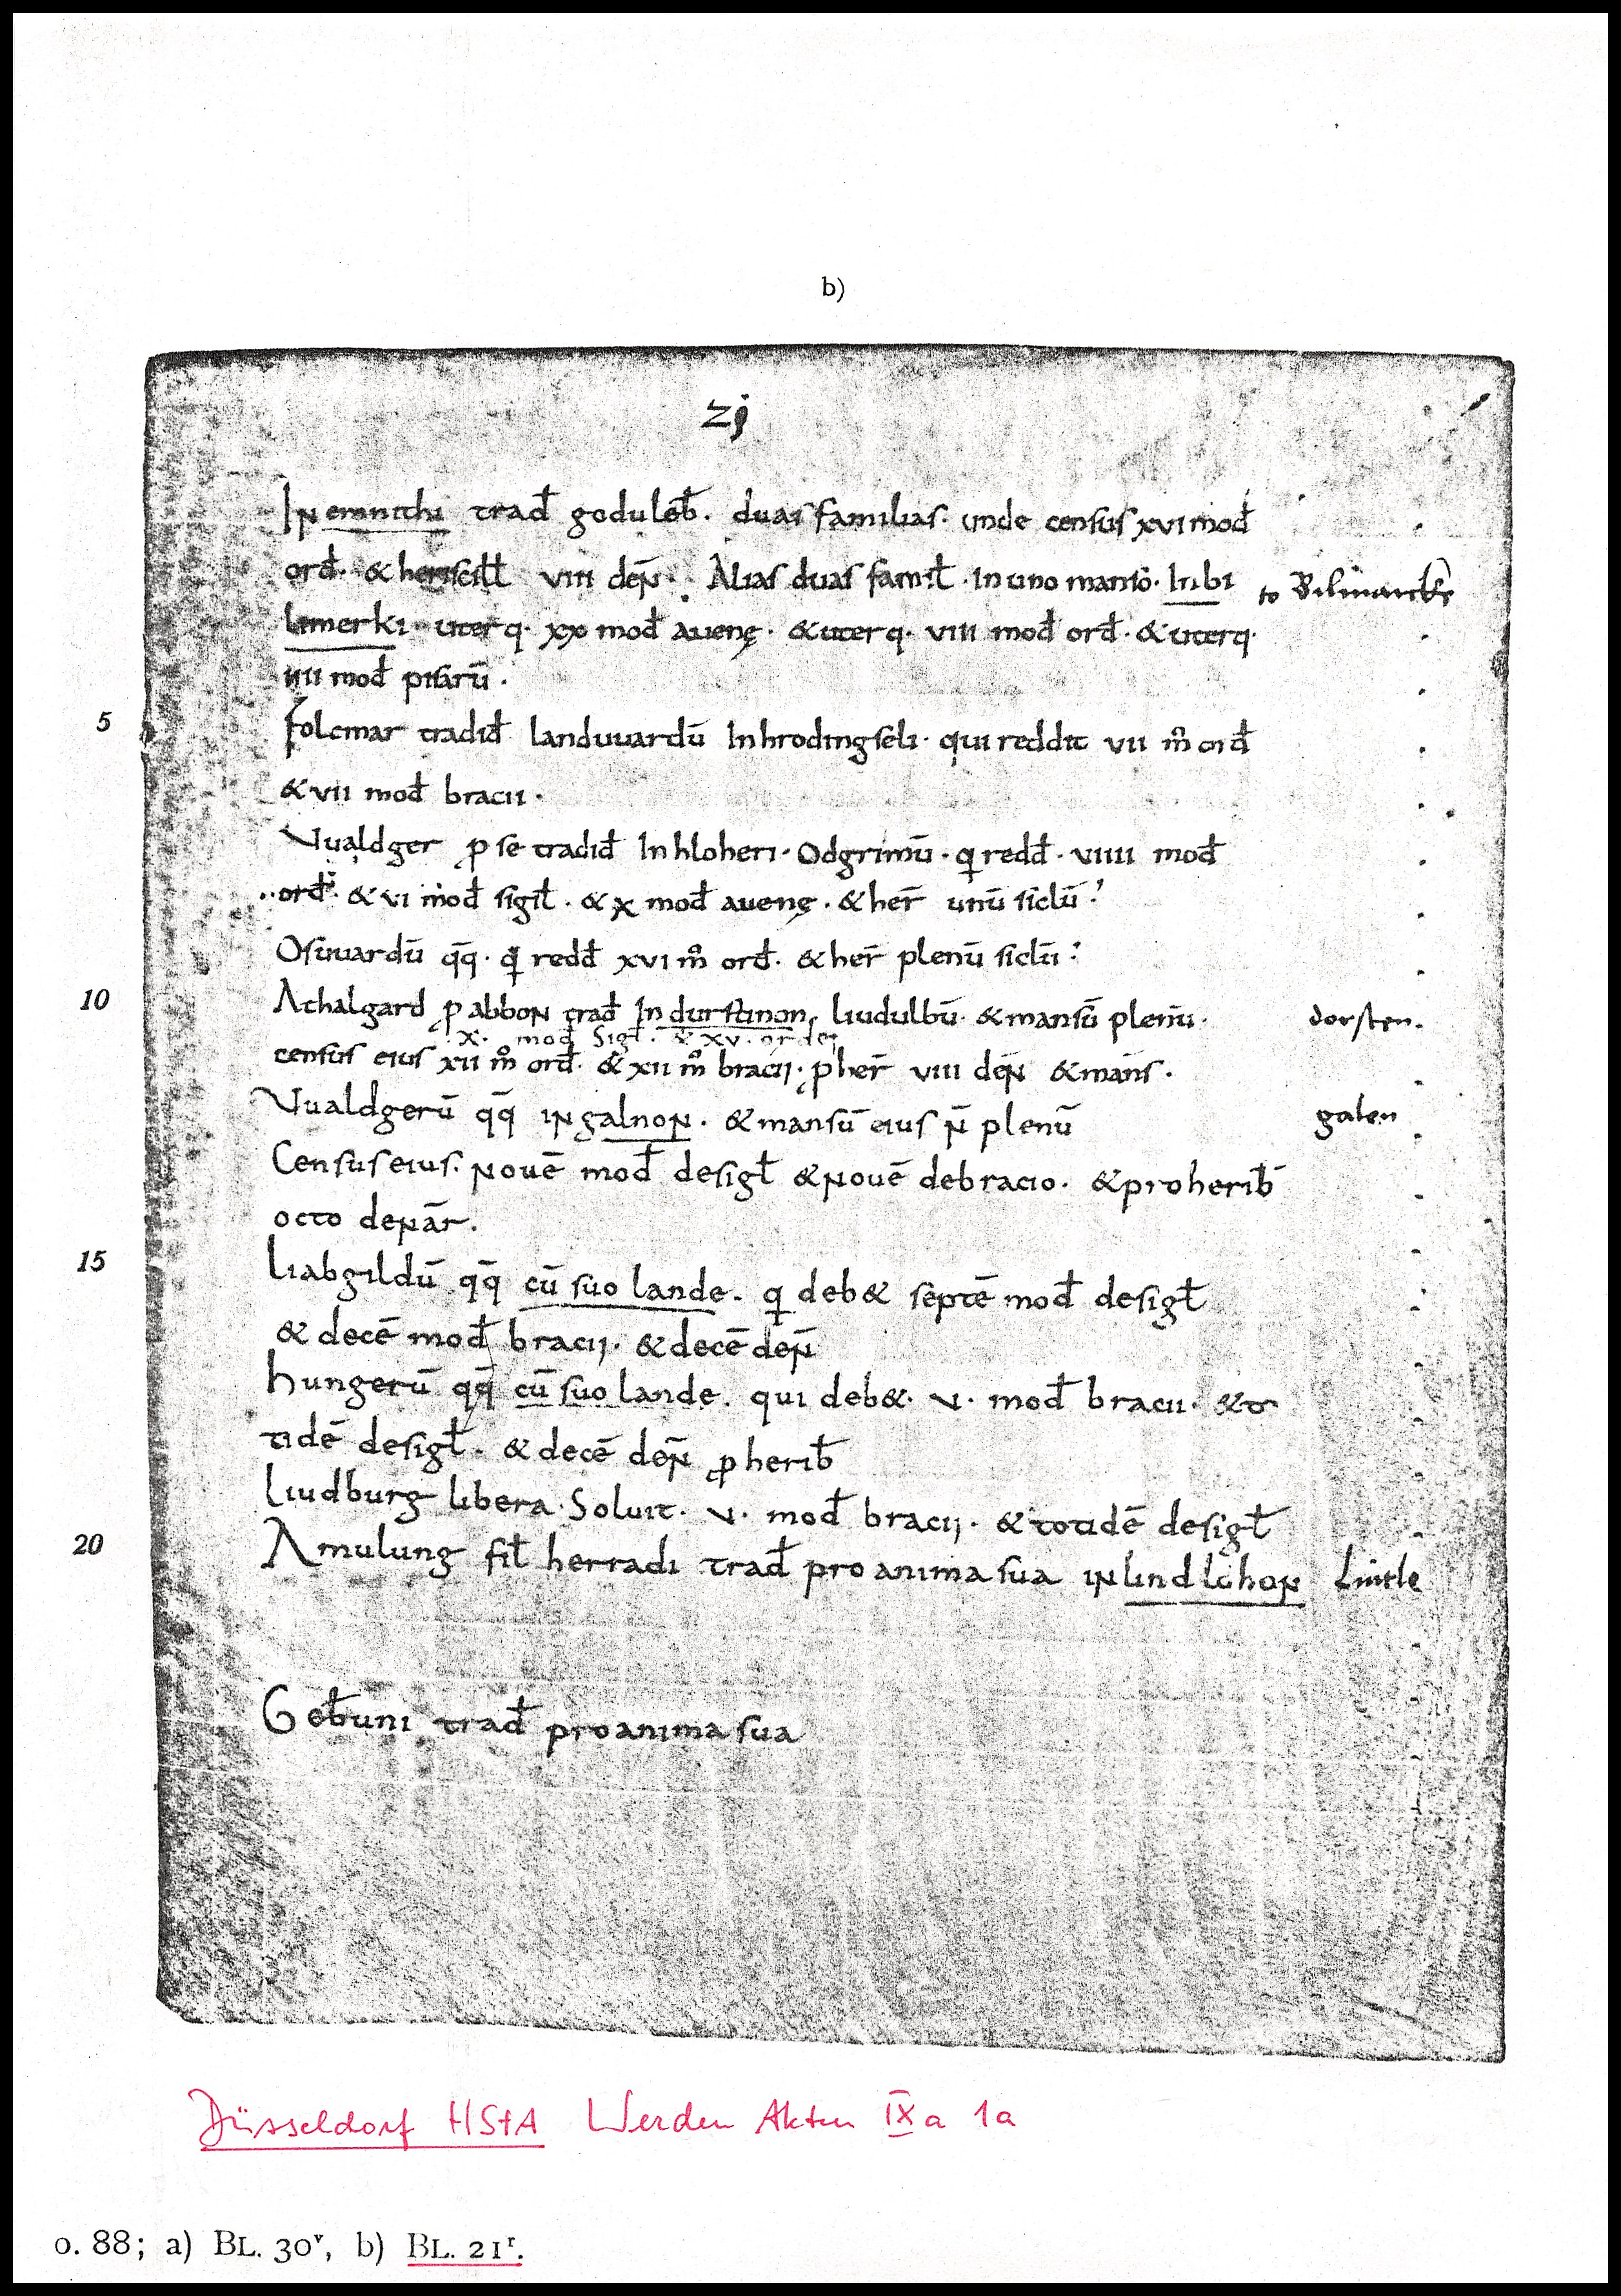 b)
zj
In emnithi trad̄ godulēb. duas familias. unde census xvi mod̄
ord̄. & heriscill̄ viii deñ. Alias duas famil̄. In uno manso. In bi
to Bilmarcke
limerki uterq. xx mod̄ avenę. & uterq. viii mod̄ ord̄. & uterq.
iiii mod̄ pisarū.
5 Folcmar tradid̄ landuuardū In hrodingseli. qui reddit vii m̊ ord̄
& vii mod̄ bracii.
Uualdger ꝑ se tradid̄ In hloheri. Odgrimū. q redd̄. viiii mod̄
ord̄. & vi mod̄ sigil̄. & x mod̄ avenę. & her̄ unū siclū.
Osuuardū qq̄. q redd̄ xvi m̊ ord̄. & her̄ plenū siclū.
10 Athalgard ꝑ abbon trad̄ In durstinon, liudulbū. & mansū plenū.
dorsten.
x. mod Sigl. & xv. ordej
census eius xii m̊ ord̄. & xii m̊ bracij. ꝑ her̄ viii deñ & mans̄.
Uualdgerū qq̄ in galnon. & mansū eius n̄ plenū
galen
Census eius. novē mod̄ de sigl̄ & novē de bracio. & pro herib̄
octo denar̄.
15 Liabgildū qq̄ cū suo lande. q deb& septē mod̄ de sigl̄
& decē mod̄ bracij. & decē deñ
Hungerū qq̄ cū suo lande. qui deb&. v. mod̄ bracii. & to
tidē de sigl̄. & decē deñ ꝑ herib̄
Liudburg libera. Soluit. v. mod̄ bracij. & totidē de sigl̄
20 Amulung fil̄ herradi trad̄ pro anima sua in lindlohon Lintle
Geb̄uni trad̄ pro anima sua
Düsseldorf HStA Werden Akten IX a 1a
o. 88; a) Bl. 30ᵛ, b) Bl. 21ʳ.